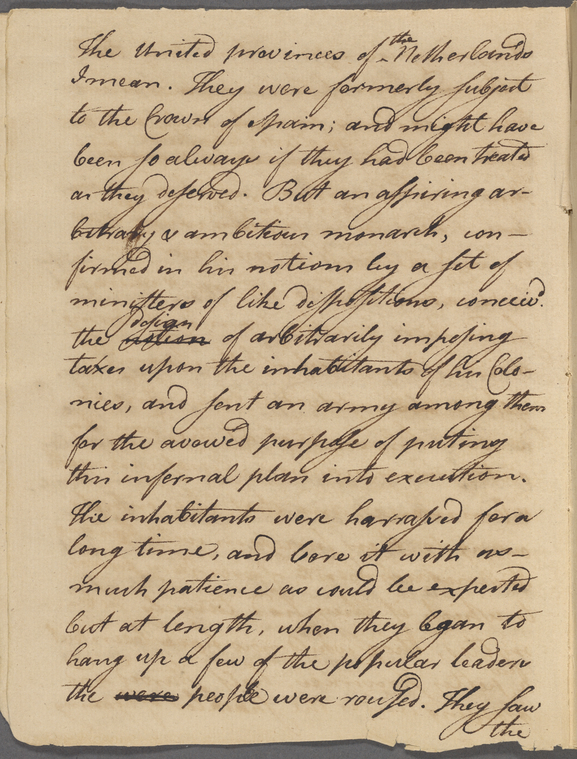 The United provinces of the Netherlands
I mean. They were formerly subject
to the Crown of Spain; and might have
been so always if they had been treated
as they deserved. But an aspiring ar-
bitrary & ambitious monarch, con-
firmed in his notions by a set of
ministers of like dispositions, conceiv'd
the notion design of arbitrarily imposing
taxes upon the inhabitants of his Colo-
nies, and sent an army among them
for the avowed purpose of puting
this infernal plan into execution.
The inhabitants were harrassed for a
long time, and bore it with as-
much patience as could be expected
but at length, when they began to
hang up a few of the popular leaders
the were people were roused. They saw
the